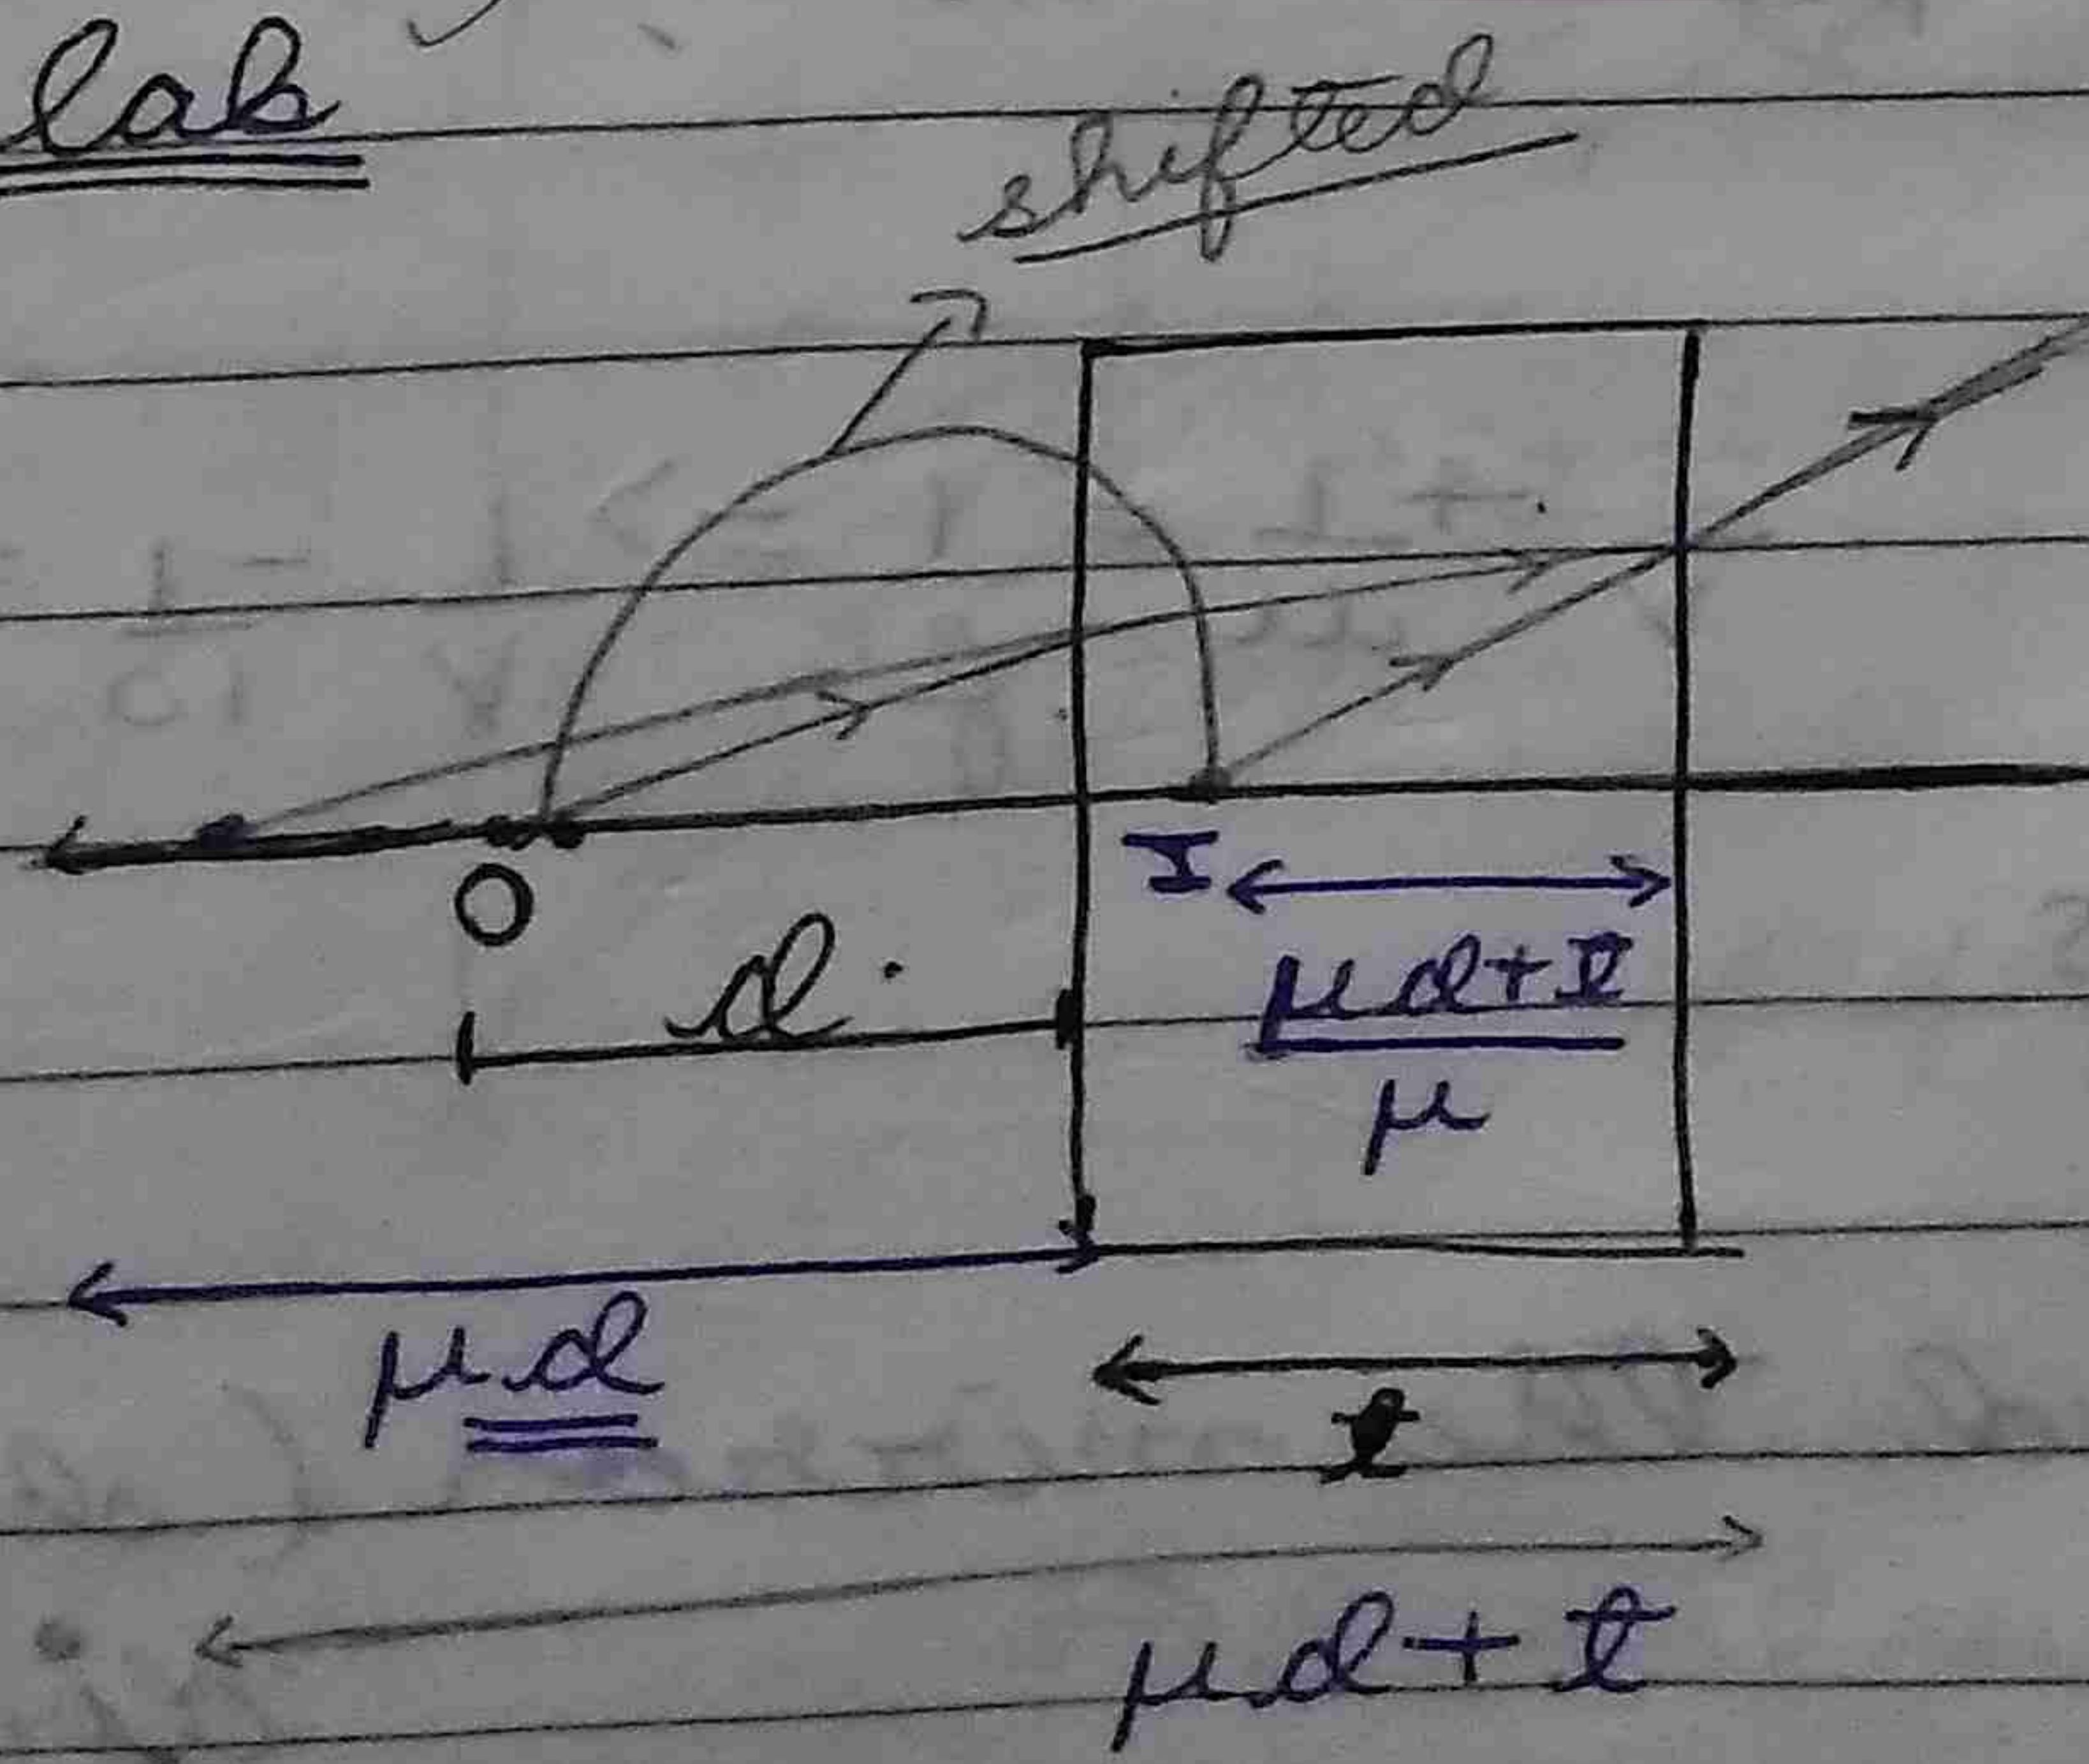 lab
shifted
O
I
d
μd+t
μ
μd
t
μd+t